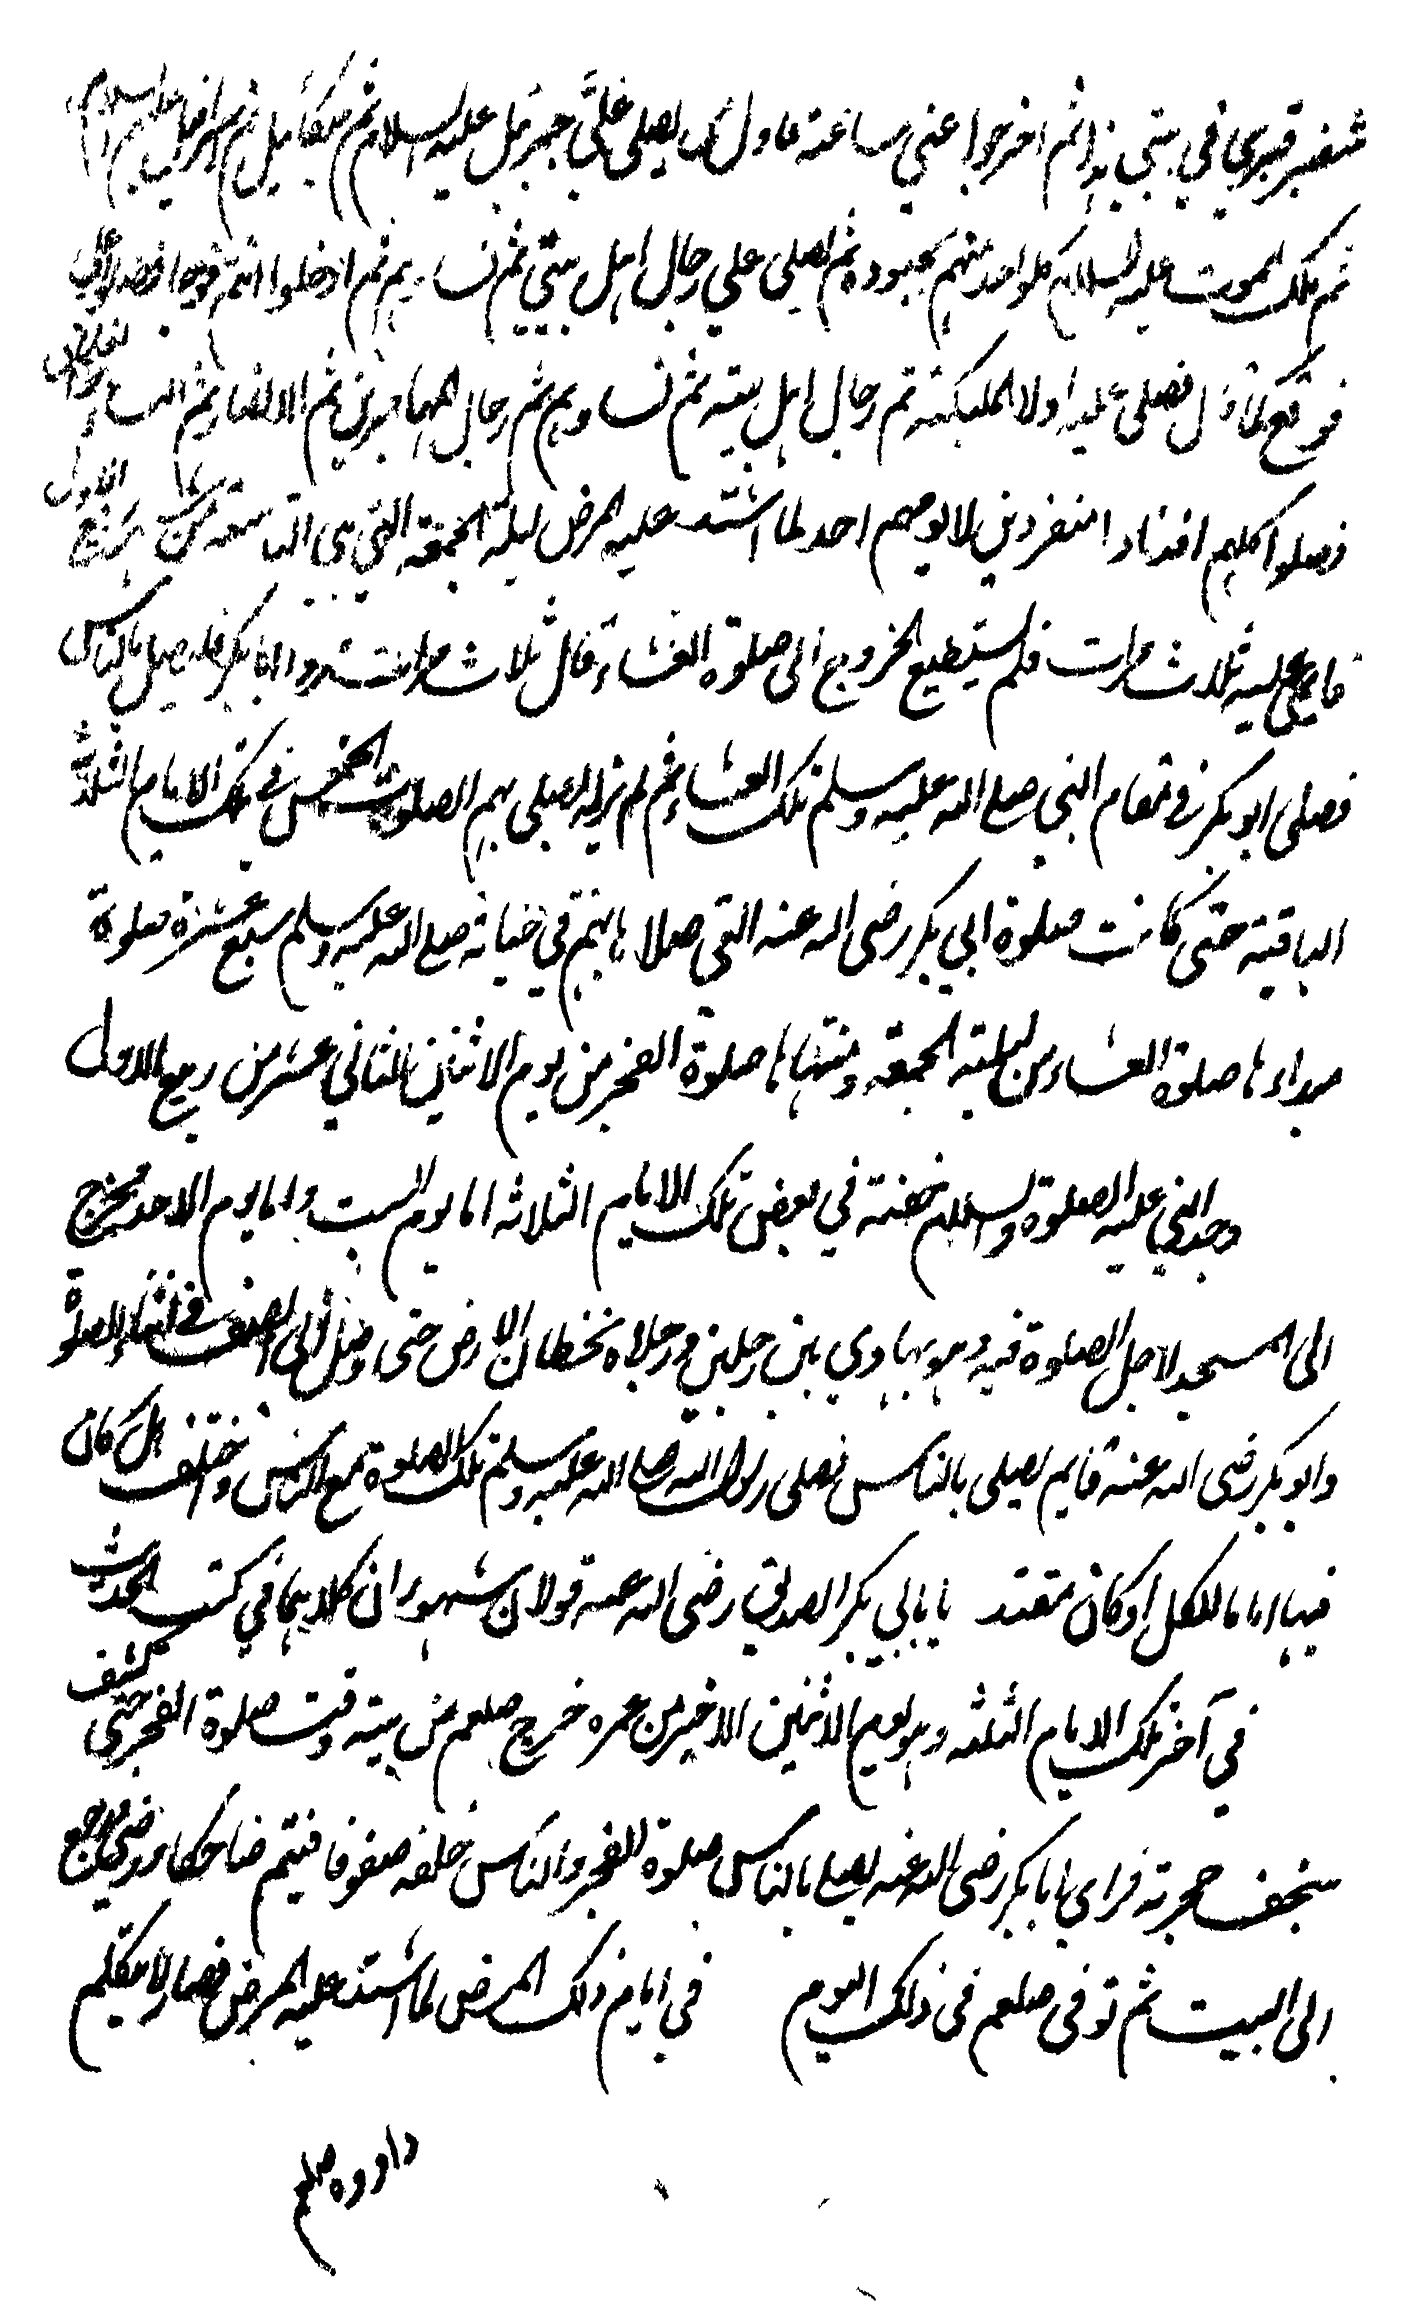 شفير قبري في بيتي هذا ثم اخرجوا عني ساعة فاول من يصلي عليّ جبرئيل عليه السلام ثم ميكائيل ثم اسرافيل عليهم السلام
ثم ملك الموت عليه السلام كلواحد منهم بجنوده ثم يصلي علي رجال اهل بيتي ثم نساءهم ثم ادخلوا انتم فوجا فصلوا علي
فوقع كما قال فصلى عليه اولا الملئكة ثم رجال اهل بيته ثم نساوهم ثم رجال المهاجرين ثم الانصار ثم النساء ثم الغلمان
فصلوا كلهم افذاذا منفردين لا يومهم احد لما اشتد عليه المرض ليلة الجمعة التي هي التاسعة من ربيع الاول
فاغمي عليه ثلاث مرات فلم يستطيع الخروج الى صلوة العشاء قال ثلاث مرات مروا ابا بكر فليصل بالناس
فصلى ابو بكر في مقام النبي صلى الله عليه وسلم تلك العشاء ثم لم يزل يصلي بهم الصلوات الخمس في تلك الايام الثلثة
الباقية حتى كانت صلوة ابي بكر رضى الله عنه التي صلاها بهم في حياته صلى الله عليه وسلم سبع عشرة صلوة
مبداءها صلوة العشاء من ليلة الجمعة ومنتهاها صلوة الفجر من يوم الاثنين الثاني عشر من ربيع الاول
وجد النبي عليه الصلوة والسلام خفة في بعض تلك الايام الثلاثة اما يوم السبت واما يوم الاحد فخرج
الى المسجد لاجل الصلوة فيه وهو يهادي بين رجلين ورجلاه تخطان الارض حتى اوصل الى الصف في اثناء الصلوة
وابو بكر رضى الله عنه قايم يصلي بالناس فصلى رسول الله صلى الله عليه وسلم تلك الصلوة مع الناس واختلف هل كان
فيها اماما للكل او كان مقتديا بابي بكر الصديق رضى الله عنه قولان مشهوران كلاهما في كتب الحديث
في آخر تلك الايام الثلثة وهو يوم الاثنين الاخير من عمره خرج صلعم من بيته وقت صلوة الفجر حتى كشف
سجف حجرته فراي ابا بكر رضى الله عنه يصلي بالناس صلوة الفجر والناس خلفه صفوفا فتبسم ضاحكا ورضي ورجع
الى البيت ثم توفى صلعم في ذلك اليوم في ايام ذلك المرض لما اشتد عليه المرض فصار لا يتكلم
داووه صلعم